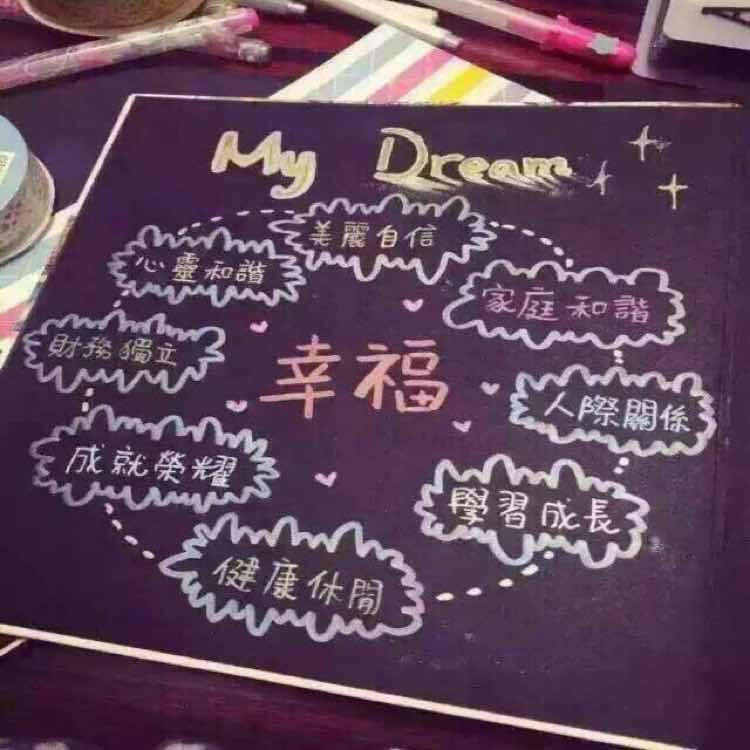 My Dream
美麗自信
心靈和諧
家庭和諧
財務獨立
幸福
人際關係
成就榮耀
學習成長
健康休閒